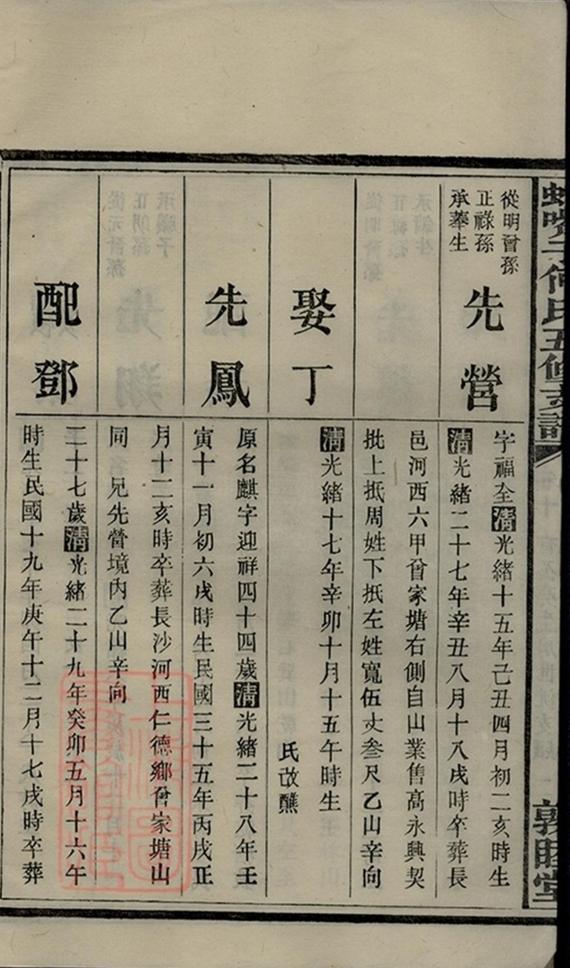 何氏五修支譜
敦睦堂
從明曾孫
正祿孫
承菶生
先營
字福全清光緒十五年己丑四月初二亥時生
清光緒二十七年辛丑八月十八戌時卒葬長
邑河西六甲曾家塘右側自山業售高永興契
批上抵周姓下抵左姓寬伍丈叁尺乙山辛向
娶丁
清光緒十七年辛卯十月十五午時生
氏改醮
先鳳
原名麒字迎祥四十四歲清光緒二十八年壬
寅十一月初六戌時生民國三十五年丙戌正
月十二亥時卒葬長沙河西仁德鄉曾家塘山
同兄先營境內乙山辛向
配鄧
二十七歲清光緒二十九年癸卯五月十六午
時生民國十九年庚午十二月十七戌時卒葬